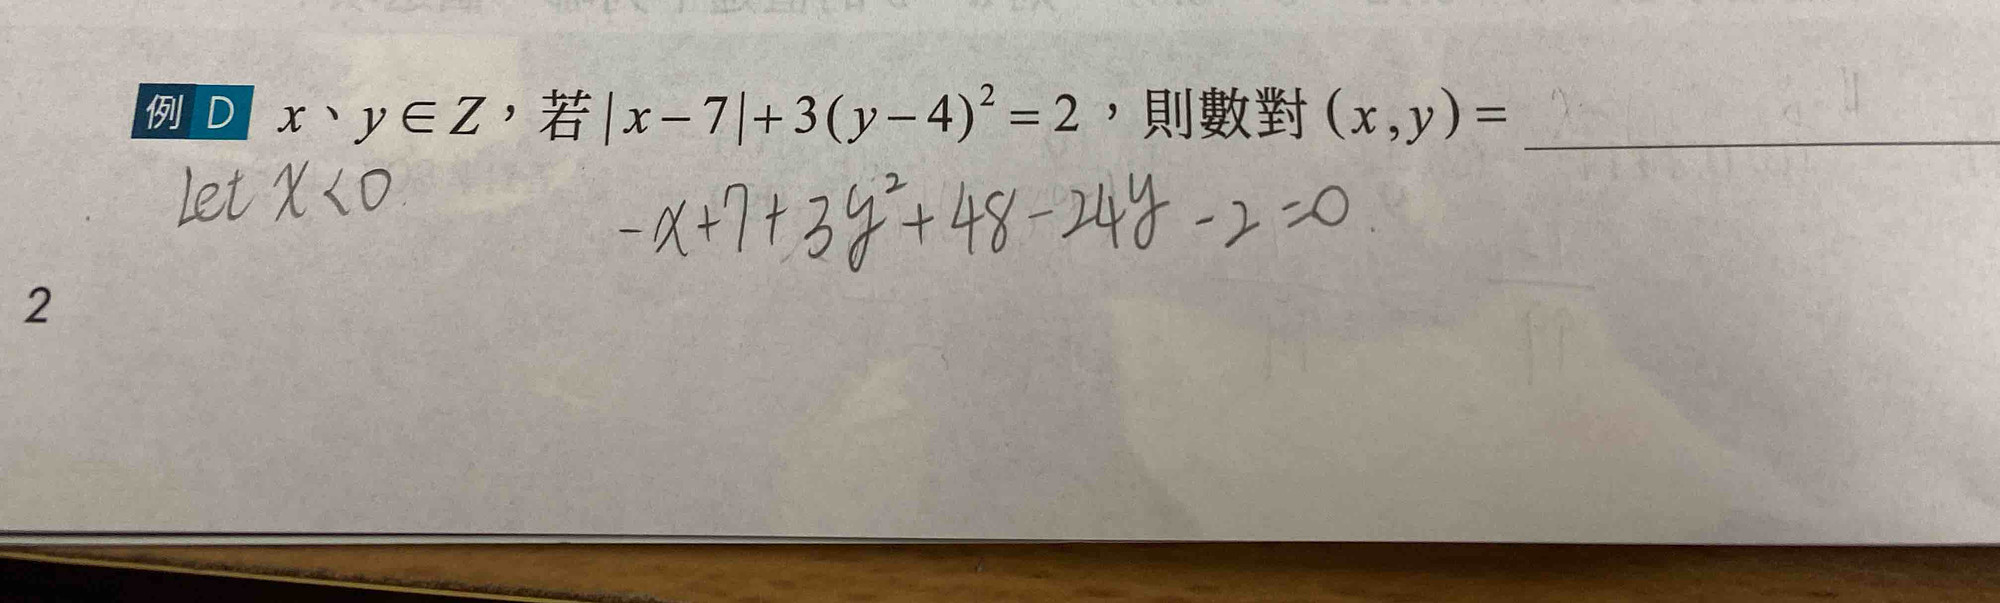 例 D x、y∈Z，若|x−7|+3(y−4)²=2，則數對(x,y)=
Let x<0.
-x+7+3y²+48-24y-2=0.
2